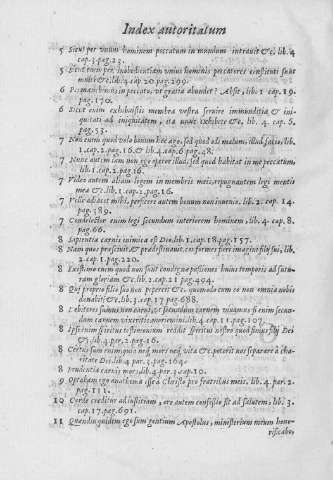 Index autoritatum
5 Sicut per unum hominem peccatum in mundum intravit &c. lib. 4
cap. 3. pag. 23.
5 Sicut enim per inobedientiam unius hominis peccatores constituti sunt
multi &c. lib. 4 cap. 20. pag. 299.
6 Permanebimus in peccato, ut gratia abundet? Absit, lib. 1 cap. 19.
pag. 170.
6 Sicut enim exhibuistis membra vestra servire immunditiæ & ini-
quitati ad iniquitatem, ita nunc exhibete &c. lib. 4. cap. 6.
pag. 53.
7 Non enim quod volo bonum hoc ago, sed quod odi malum, illud facio, lib.
1. cap. 2. pag. 16. & lib. 4. cap. 6. pag. 48.
7 Nunc autem iam non ego operor illud, sed quod habitat in me peccatum,
lib. 1. cap. 2. pag. 16.
7 Video autem aliam legem in membris meis, repugnantem legi mentis
meæ &c. lib. 1. cap. 2. pag. 16.
7 Velle adiacet mihi, perficere autem bonum non invenio. lib. 2. cap. 14.
pag. 389.
7 Condelector enim legi secundum interiorem hominem, lib. 4. cap. 8.
pag. 66.
8 Sapientia carnis inimica est Deo, lib. 1. cap. 18. pag. 157.
8 Nam quos præscivit, & prædestinavit, conformes fieri imaginis filij sui, lib.
2. cap. 1. pag. 220.
8 Existimo enim quod non sunt condignæ passiones huius temporis ad futu-
ram gloriam &c. lib. 2. cap. 4. pag. 494.
8 Qui proprio filio suo non pepercit &c. quomodo cum eo non omnia nobis
donabit &c. lib. 3. cap. 17. pag. 688.
8 Debitores sumus non carni, ut secundum carnem vivamus, si enim secun-
dum carnem vixeritis, moriemini, lib. 4. cap. 11. pag. 107.
8 Ipse enim spiritus testimonium reddit spiritui nostro quod sumus filij Dei
& lib. 4. par. 2. pag. 16.
8 Certus sum enim quia neq; mors neq; vita &c. poterit nos separare à cha-
ritate Dei, lib. 4. par. 3. pag. 169.
8 Prudentia carnis mors, lib. 4. par. 3. cap. 10.
9 Optabam ego anathema esse à Christo pro fratribus meis, lib. 4. par. 2.
pag. 111.
10 Corde creditur ad iustitiam, ore autem confessio fit ad salutem, lib. 3.
cap. 17. pag. 691.
11 Quandiu quidem ego sum gentium Apostolus, ministerium meum hono-
rificabo,